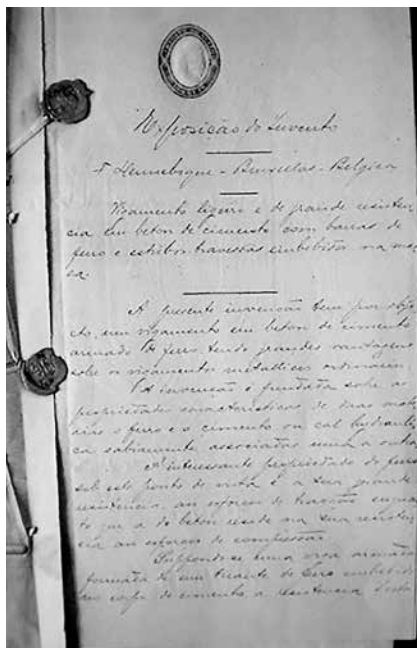 Exposição do Invento
F Hennebique - Bruxellas - Belgica
Vigamento ligeiro e de grande resisten
cia em beton de cimento com barras de
ferro e estribos travessões embebidos na mas
sa.
A presente invenção tem por obje
cto, um vigamento em beton de cimento
armado de ferro, tendo grandes vantagens
sobre os vigamentos metallicos ordinarios.
A invenção é fundada sobre as
propriedades caracteristicas de duas mate
rias o ferro e o cimento ou cal hydrauli
ca sabiamente associadas uma a outra
A interessante propriedade do ferro
sob este ponto de vista é a sua grande
resistencia, an esforços de tracção, emquan
to que a do beton reside na sua resisten
cia an esforços de compressão.
Suppondo-se uma viga armada
formada de um tirante de ferro embebido
corpo de cimento, a resistencia